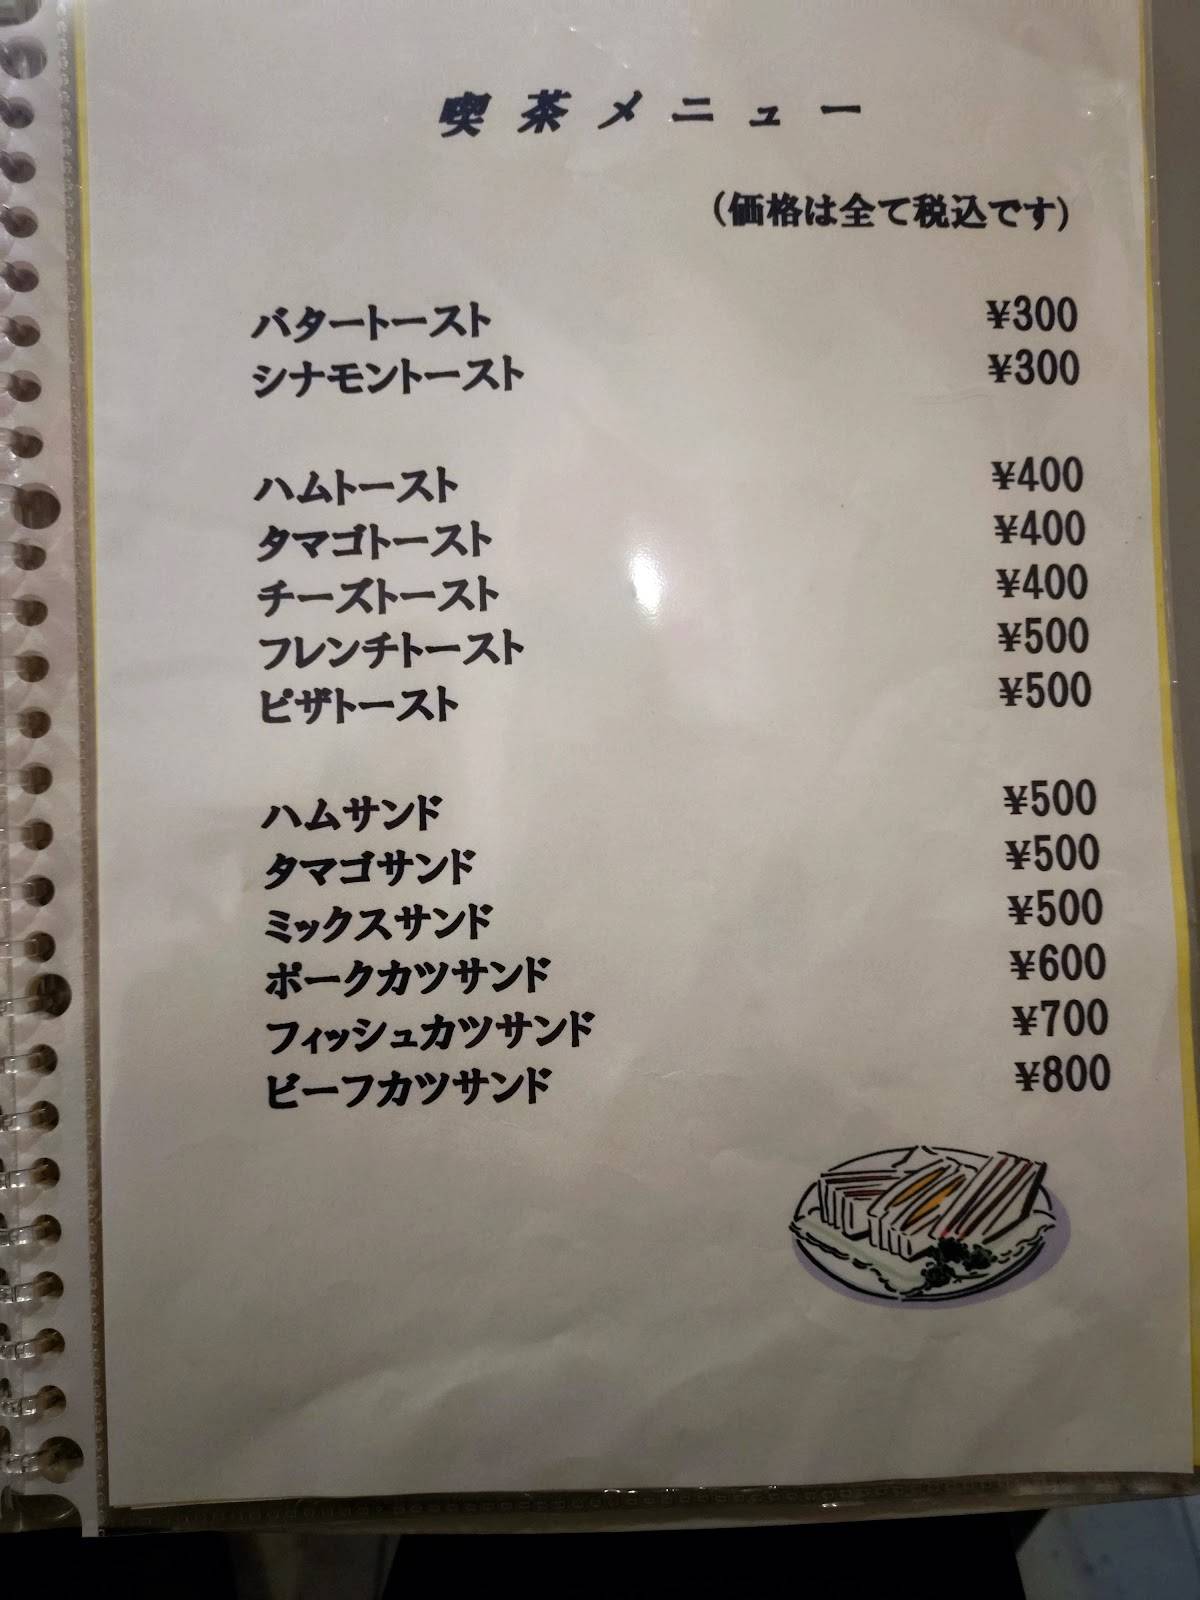 喫茶メニュー
(価格は全て税込です)
バタートースト ¥300
シナモントースト ¥300
ハムトースト ¥400
タマゴトースト ¥400
チーズトースト ¥400
フレンチトースト ¥500
ピザトースト ¥500
ハムサンド ¥500
タマゴサンド ¥500
ミックスサンド ¥500
ポークカツサンド ¥600
フィッシュカツサンド ¥700
ビーフカツサンド ¥800